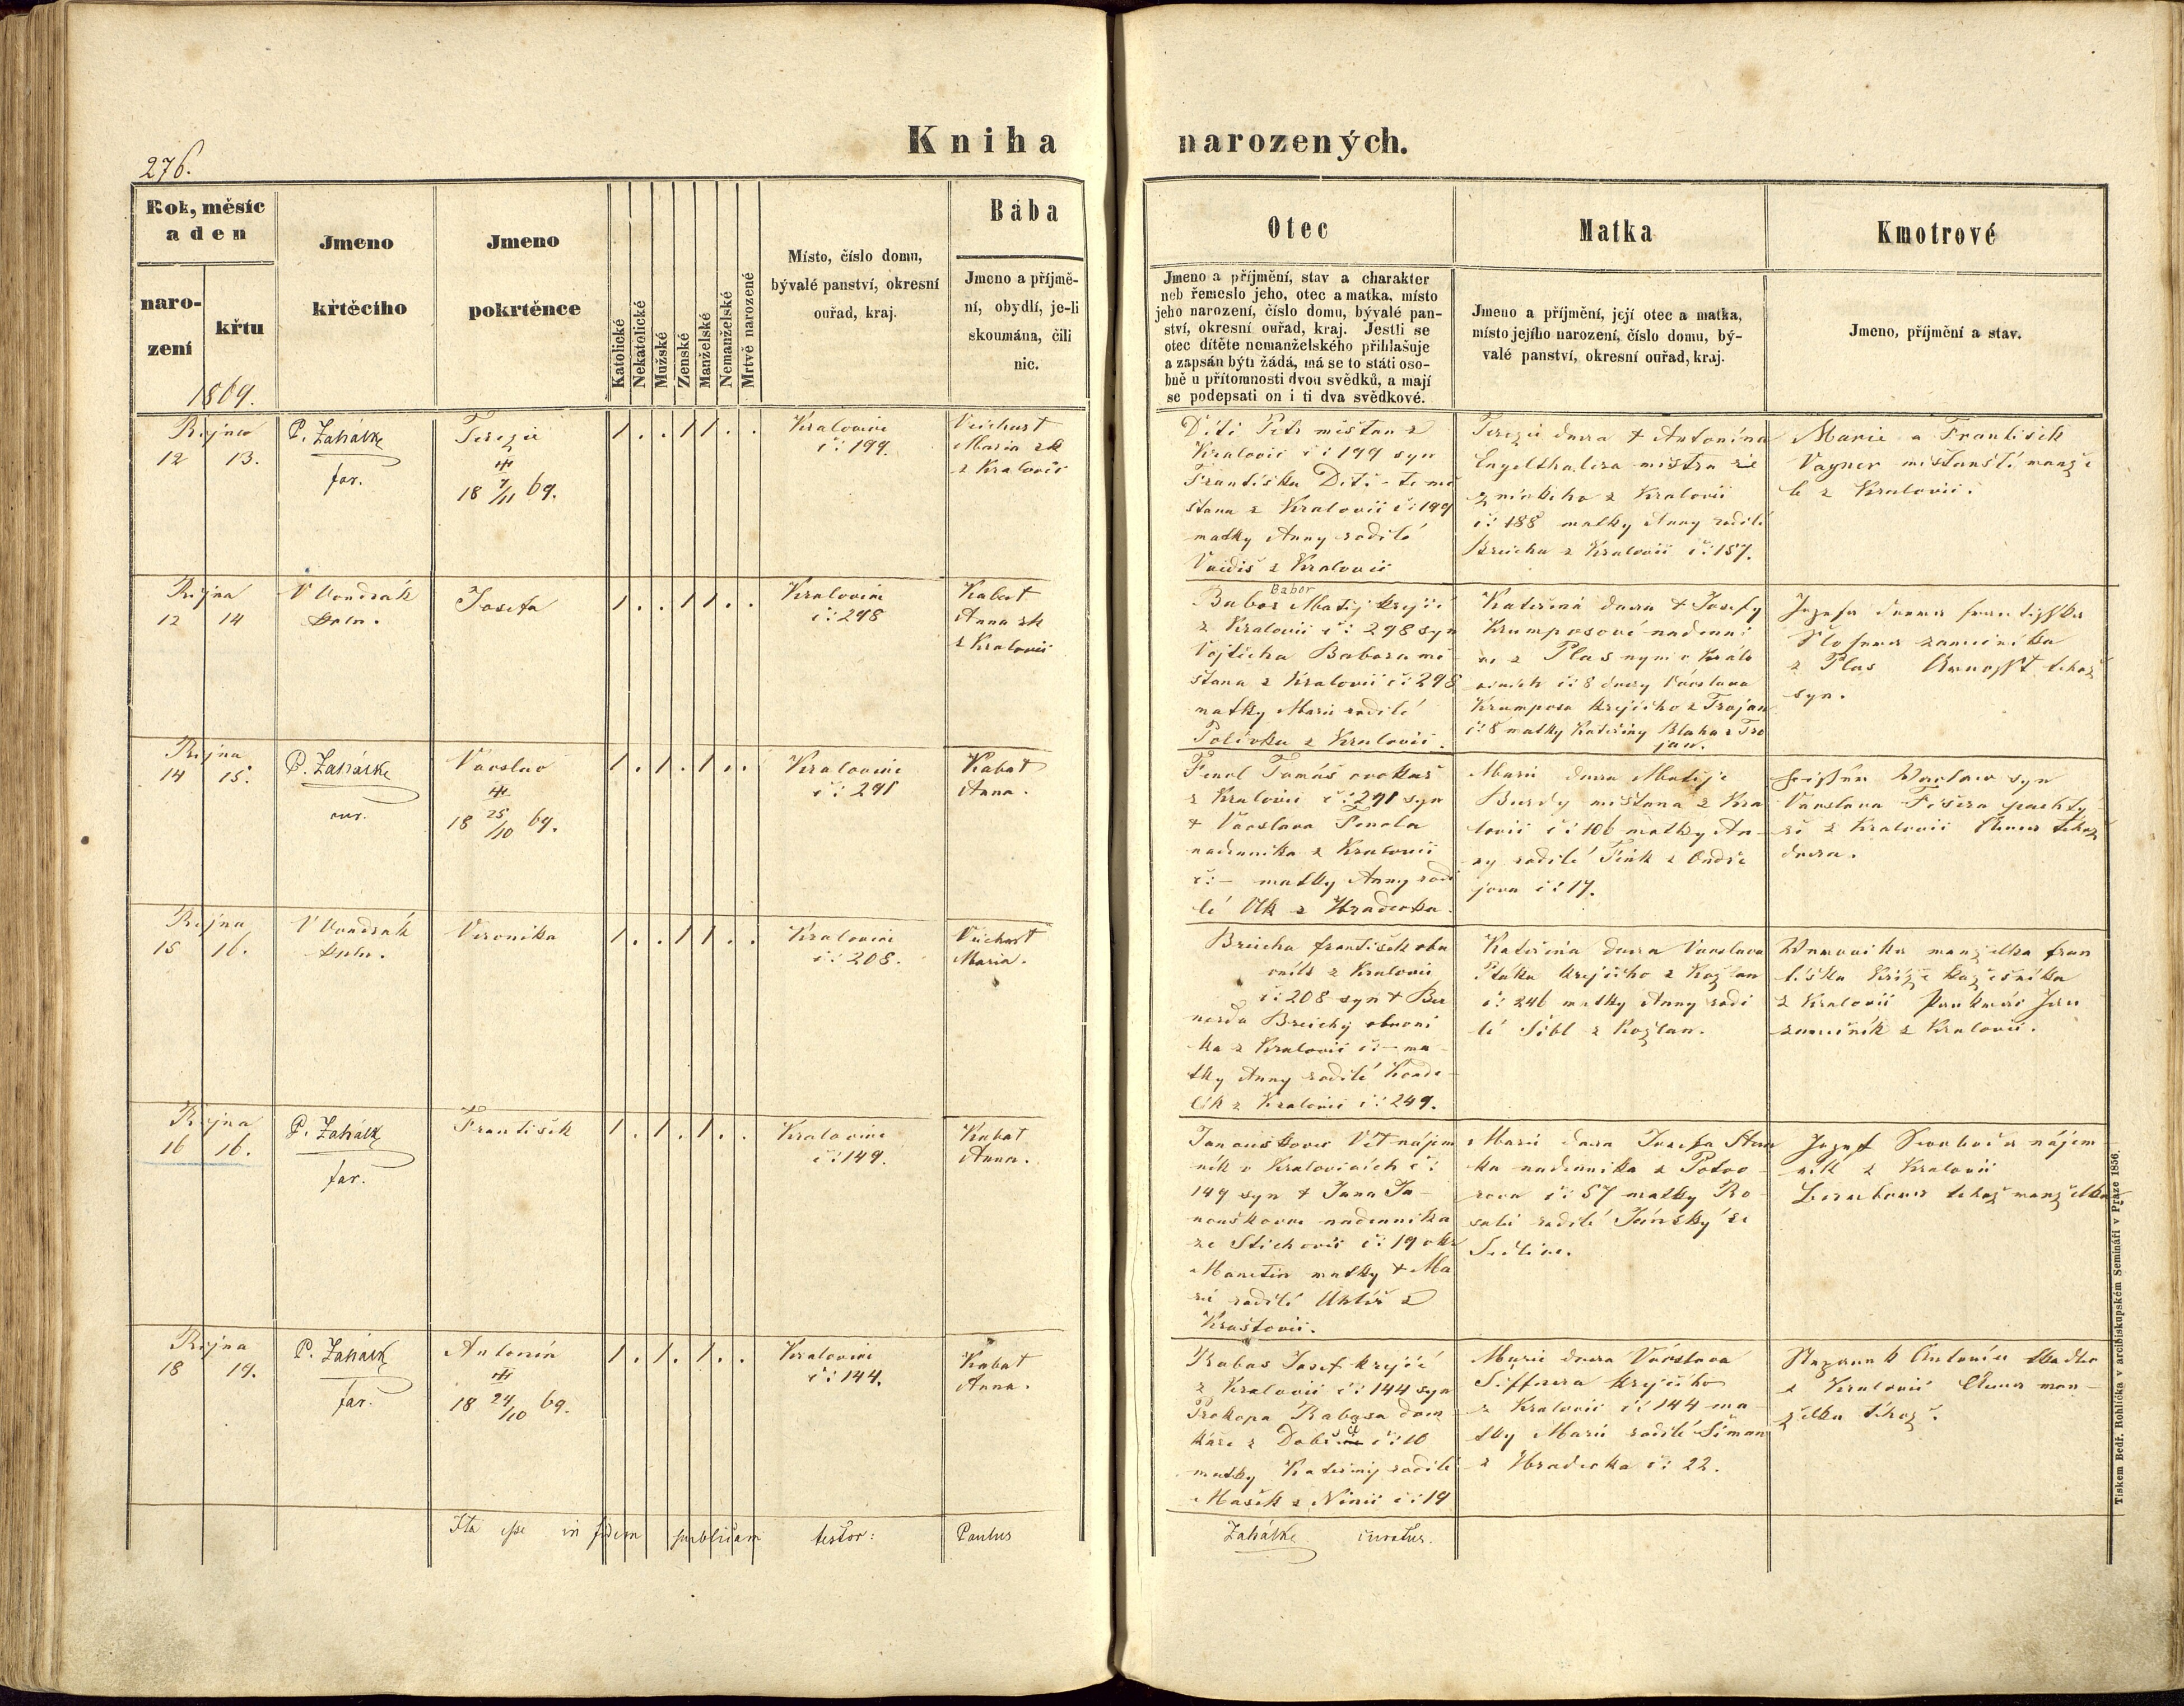 Kniha narozených.
276.
Rok, měsíc
a den
naro-
zení
křtu
1869.
Jmeno
křtěcího
Jmeno
pokrtěnce
Katolické
Nekatolické
Mužské
Ženské
Manželské
Nemanželské
Mrtvě narozené
Místo, číslo domu,
bývalé panství, okresní
ouřad, kraj.
Bába
Jmeno a příjmě-
ní, obydlí, je-li
skoumána, čili
nic.
Otec
Jmeno a příjmění, stav a charakter
neb řemeslo jeho, otec a matka, místo
jeho narození, číslo domu, bývalé pan-
ství, okresní ouřad, kraj. Jestli se
otec dítěte nemanželského přihlašuje
a zapsán býti žádá, má se to státi oso-
bně u přítomnosti dvou svědků, a mají
se podepsati on i ti dva svědkové.
Matka
Jmeno a příjmění, její otec a matka,
místo jejího narození, číslo domu, bý-
valé panství, okresní ouřad, kraj.
Kmotrové
Jmeno, příjmění a stav.
Října
12 13.
P. Zahálka
far.
Terezie
18 7/11 69.
Kralovice
č: 199.
Maria zk
z Kralovic
Petr mistan z
Kralovic č: 199 syn
Františka
stana z Kralovic č: 199
matky Anny rodilé
z Kralovic
Terezie dcera † Antonína
z Kralovic
č: 188 matky Anny rodilé
Breicha z Kralovic č: 187.
Marie a František
Vagner
z Kralovic.
Října
12 14
V Vondrák
Josefa
Kralovice
č: 298
Kabat
Anna zk
z Kralovic
Babor
Babor Matěj krejčí
z Kralovic č: 298 syn
Vojtěcha Babora mě
stana z Kralovic č: 298
matky Marie rodilé
Polívka z Kralovic.
Kateřina dcera † Josefy
Krumposové nadenni
ce z Plas nyní v Králo
vicích č: 8 dcery Václava
Krumposa krejčího z Trojan
č: 8 matky Kateřiny Blaha z Tro
jan.
Jozefa
z Plas
syn.
Října
14 15.
P. Zahálka
cur.
Václav
18 25/10 69.
Kralovice
č: 291
Kabat
Anna.
Tomáš
z Kralovic č: 291 syn
† Václava
nadenníka z Kralovic
č: – matky Anny rodi
lé Vlk z Hradecka.
Marie dcera Matěje
Burdy mistana z Kra
lovic č: 106 matky An-
ny rodilé z Ondře
jova č: 17.
Václav syn
Václava Fišera pachtý
ře z Kralovic Anna téhož
dcera.
Října
15 16.
V Vondrák
Veronika
Kralovice
č: 208.
Maria.
Breicha František obu
vník z Kralovic
č: 208 syn † Ber
narda Breichy obuvní
ka z Kralovic č: – ma-
tky Anny rodilé Konde-
lík z Kralovic č: 249.
Kateřina dcera Václava
Ptáka krejčího z Kožlan
č: 246 matky Anny rodi
lé Sibl z Kožlan.
Veronika manželka Fran
tiška Kříže
z Kralovic Jan
zámečník z Kralovic.
Října
16 16.
P. Zahálka
far.
František
Kralovice
č: 149.
Kabat
Anna.
Janouškovec Vít nájem
ník v Kralovicích č:
149 syn † Jana Ja-
nouškovce nadenníka
ze Stichovic č: 19 okr
Manetin matky † Ma
rie rodilé Uhlíř z
Hrastovic.
Marie dcera Josefa
nadenníka z Potvo-
rova č: 57 matky Ro-
salie rodilé Jánský ze
Sedlice.
Jozef Svoboda nájem
ník z Kralovic
téhož manželka
Října
18 19.
P. Zahálka
far.
Antonín
18 24/10 69.
Kralovice
č: 144.
Kabat
Anna.
Rabas Josef krejčí
z Kralovic č: 144 syn
Prokopa Rabasa dom
káře z č: 10
matky Kateřiny rodilé
Mašek z č: 14
Marie dcera Václava
krejčího
z Kralovic č: 144 ma-
tky Marie rodilé Šiman
z Hradecka č: 22.
Antonín
z Kralovic Anna man-
želka téhož.
Ita esse in fidem publicam testor: Paulus Zahálka curatus.
Tiskem Bedř. Rohlíčka v arcibiskupském Semináři v Praze 1856.